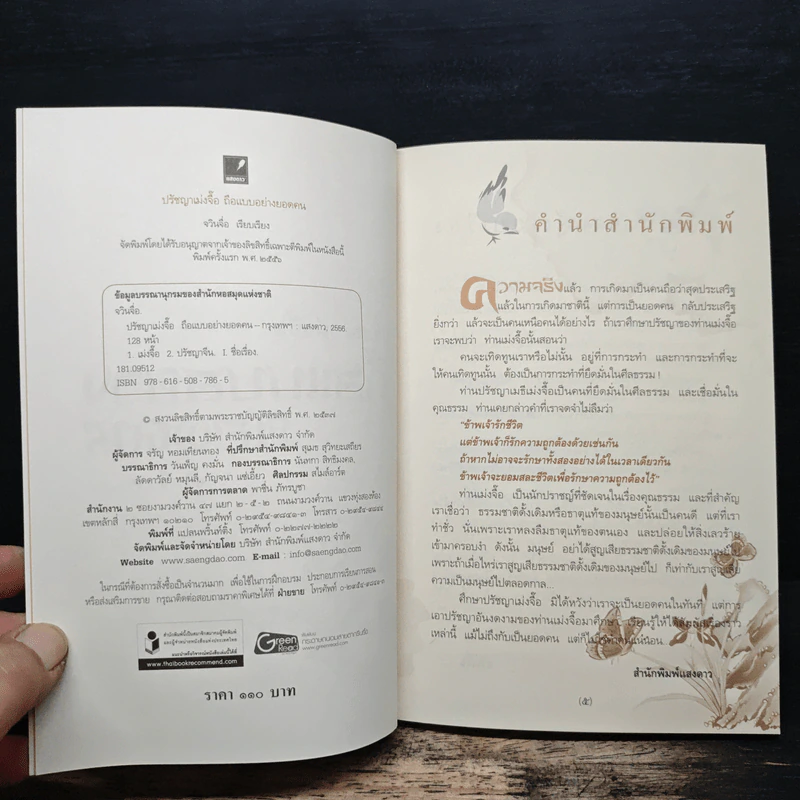 แสงดาว
ปรัชญาเม่งจื๊อ ถือแบบอย่างยอดคน
จวินจื่อ เรียบเรียง
จัดพิมพ์โดยได้รับอนุญาตจากเจ้าของลิขสิทธิ์เฉพาะตีพิมพ์ในหนังสือนี้
พิมพ์ครั้งแรก พ.ศ. ๒๕๕๖
ข้อมูลบรรณานุกรมของสำนักหอสมุดแห่งชาติ
จวินจื่อ.
ปรัชญาเม่งจื๊อ ถือแบบอย่างยอดคน – กรุงเทพฯ : แสงดาว, 2556.
128 หน้า
1. เม่งจื๊อ 2. ปรัชญาจีน. I. ชื่อเรื่อง.
181.09512
ISBN 978-616-508-786-5
© สงวนลิขสิทธิ์ตามพระราชบัญญัติลิขสิทธิ์ พ.ศ. ๒๕๓๗
เจ้าของ บริษัท สำนักพิมพ์แสงดาว จำกัด
ผู้จัดการ จรัญ หอมเทียนทอง ที่ปรึกษาสำนักพิมพ์ สุเมธ สุวิทยะเสถียร
บรรณาธิการ วันเพ็ญ คงมั่น กองบรรณาธิการ นันทกา สิทธิมงคล,
ลัดดาวัลย์ หมูนสี, กัญจนา แซ่เอี้ยว ศิลปกรรม สไมล์อาร์ต
ผู้จัดการการตลาด พาชื่น ภัทรบูชา
สำนักงาน ๒ ซอยงามวงศ์วาน ๔๗ แยก ๒-๕-๒ ถนนงามวงศ์วาน แขวงทุ่งสองห้อง
เขตหลักสี่ กรุงเทพฯ ๑๐๒๑๐ โทรศัพท์ ๐-๒๙๕๔-๙๘๔๑-๓ โทรสาร ๐-๒๙๕๔-๙๘๔๔
พิมพ์ที่ แปลนพริ้นท์ติ้ง โทรศัพท์ ๐-๒๒๗๗-๒๒๒๒
จัดพิมพ์และจัดจำหน่ายโดย บริษัท สำนักพิมพ์แสงดาว จำกัด
Website www.saengdao.com E-mail : info@saengdao.com
ในกรณีที่ต้องการสั่งซื้อเป็นจำนวนมาก เพื่อใช้ในการฝึกอบรม ประกอบการเรียนการสอน
หรือส่งเสริมการขาย กรุณาติดต่อสอบถามราคาพิเศษได้ที่ ฝ่ายขาย โทรศัพท์ ๐-๒๙๕๔-๙๘๔๑-๓
สำนักพิมพ์นี้เป็นสมาชิกสมาคมผู้จัดพิมพ์
และผู้จำหน่ายหนังสือแห่งประเทศไทย
www.thaibookrecommend.com
Green
Read
www.greenread.com
ราคา ๑๑๐ บาท
คำนำสำนักพิมพ์
ความจริงแล้ว การเกิดมาเป็นคนถือว่าสุดประเสริฐ
แล้วในการเกิดมาชาตินี้ แต่การเป็นยอดคน กลับประเสริฐ
ยิ่งกว่า แล้วจะเป็นคนเหนือคนได้อย่างไร ถ้าเราศึกษาปรัชญาของท่านเม่งจื๊อ
เราจะพบว่า ท่านเม่งจื๊อนั้นสอนว่า
คนจะเทิดทูนเราหรือไม่นั้น อยู่ที่การกระทำ และการกระทำที่จะ
ให้คนเทิดทูนนั้น ต้องเป็นการกระทำที่ยึดมั่นในศีลธรรม !
ท่านปรัชญาเมธีเม่งจื๊อเป็นคนที่ยึดมั่นในศีลธรรม และเชื่อมั่นใน
คุณธรรม ท่านเคยกล่าวคำที่เราจดจำไม่ลืมว่า
“ข้าพเจ้ารักชีวิต
แต่ข้าพเจ้าก็รักความถูกต้องด้วยเช่นกัน
ถ้าหากไม่อาจจะรักษาทั้งสองอย่างได้ในเวลาเดียวกัน
ข้าพเจ้าจะยอมสละชีวิตเพื่อรักษาความถูกต้องไว้”
ท่านเม่งจื๊อ เป็นนักปราชญ์ที่ชัดเจนในเรื่องคุณธรรม และที่สำคัญ
เราเชื่อว่า ธรรมชาติดั้งเดิมหรือธาตุแท้ของมนุษย์นั้นเป็นคนดี แต่ที่เรา
ทำชั่ว นั่นเพราะเราหลงลืมธาตุแท้ของตนเอง และปล่อยให้สิ่งเลวร้าย
เข้ามาครอบงำ ดังนั้น มนุษย์ อย่าได้สูญเสียธรรมชาติดั้งเดิมของมนุษย์ไป
เพราะถ้าเมื่อไหร่เราสูญเสียธรรมชาติดั้งเดิมของมนุษย์ไป ก็เท่ากับเราสูญเสีย
ความเป็นมนุษย์ไปตลอดกาล...
ศึกษาปรัชญาเม่งจื๊อ มิได้หวังว่าเราจะเป็นยอดคนในทันที แต่การ
เอาปรัชญาอันงดงามของท่านเม่งจื๊อมาศึกษา เรียนรู้ให้
เหล่านี้ แม้ไม่ถึงกับเป็นยอดคน แต่ก็
สำนักพิมพ์แสงดาว
(๕)